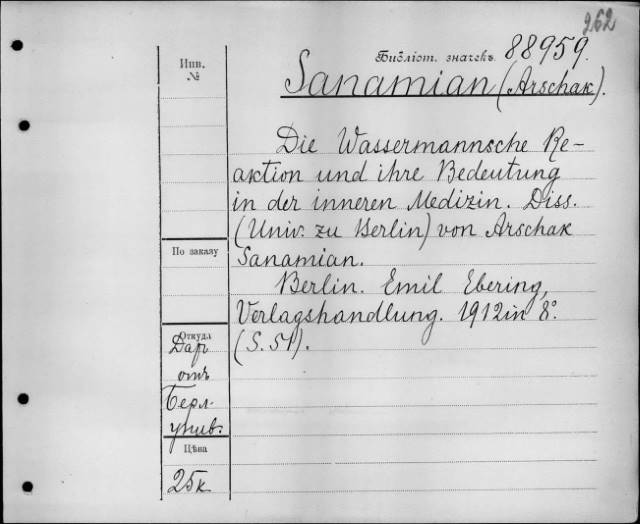 262
Библіот. значекъ 88959.
Sanamian (Arschak).
Инв.
№
Die Wassermannsche Re-
aktion und ihre Bedeutung
in der inneren Medizin. Diss.
(Univ. zu Berlin) von Arschak
Sanamian.
Berlin. Emil Ebering,
Verlagshandlung. 1912 in 8°.
(S. 51).
По заказу
Откуда
Даръ
отъ
Берл.
унив.
Цѣна
25 к